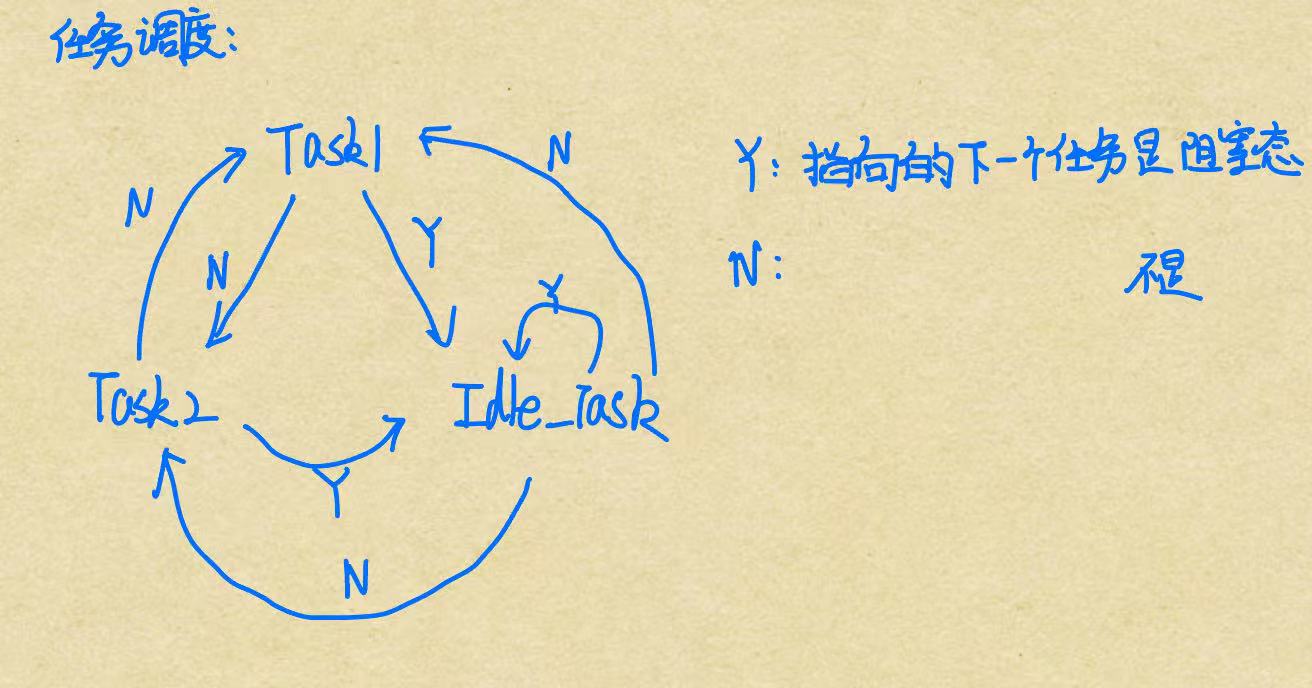 任务调度:
Task1
N
N
N
Y
Y
Task2
Idle_Task
Y
N
Y: 指向的下一个任务是阻塞态
N: 不是